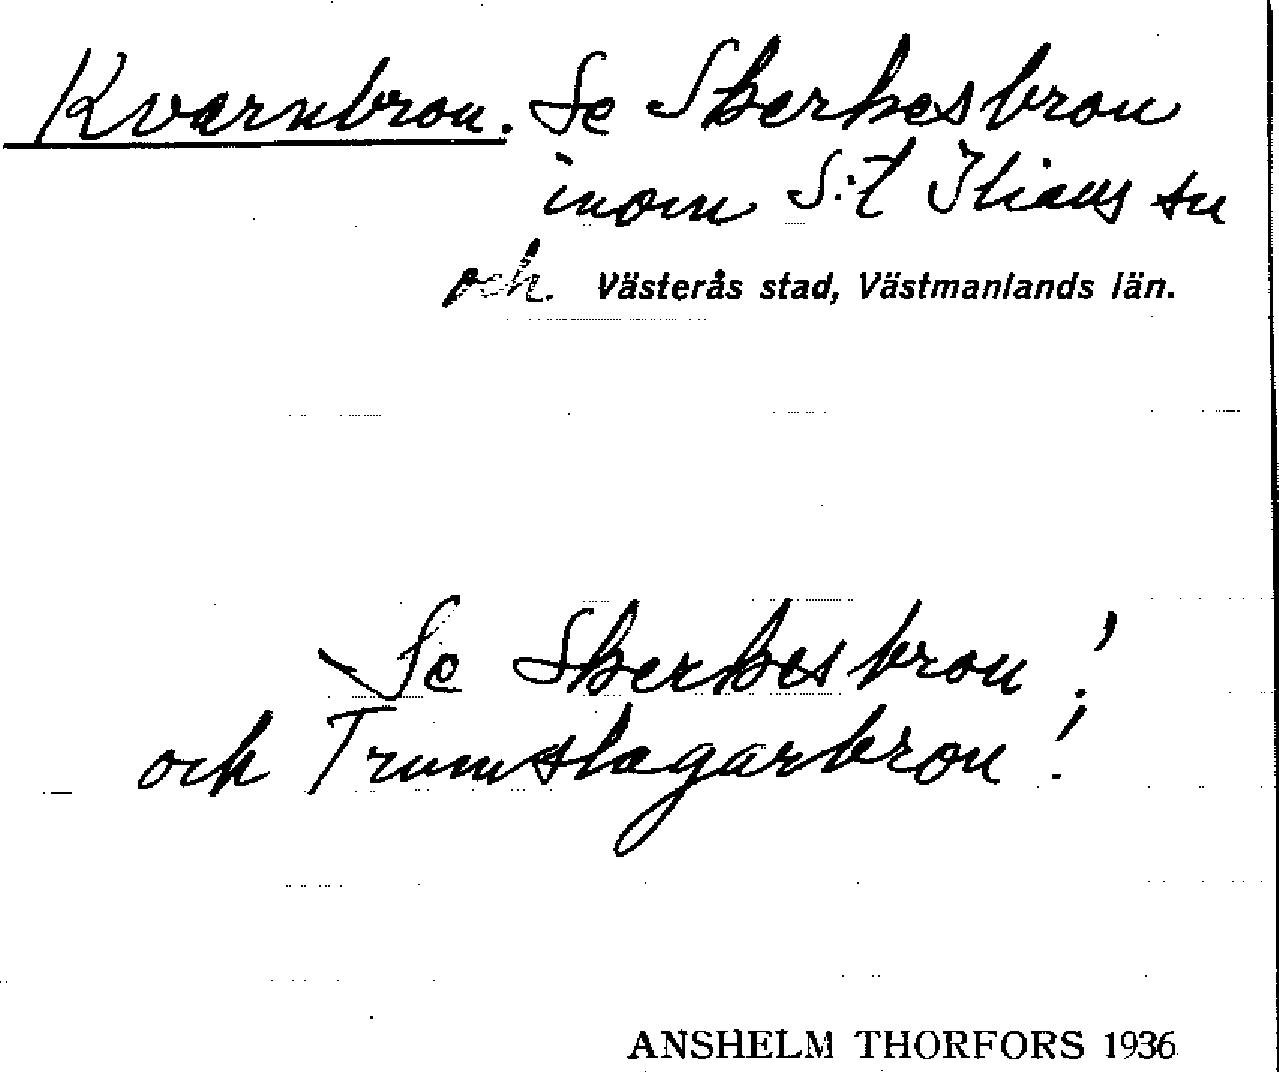 Kvarnbron. Se Skerkesbron
inom S:t Ilians sn
och. Västerås stad, Västmanlands län.
Se Skerkesbron!
och Trumslagarbron!
ANSHELM THORFORS 1936